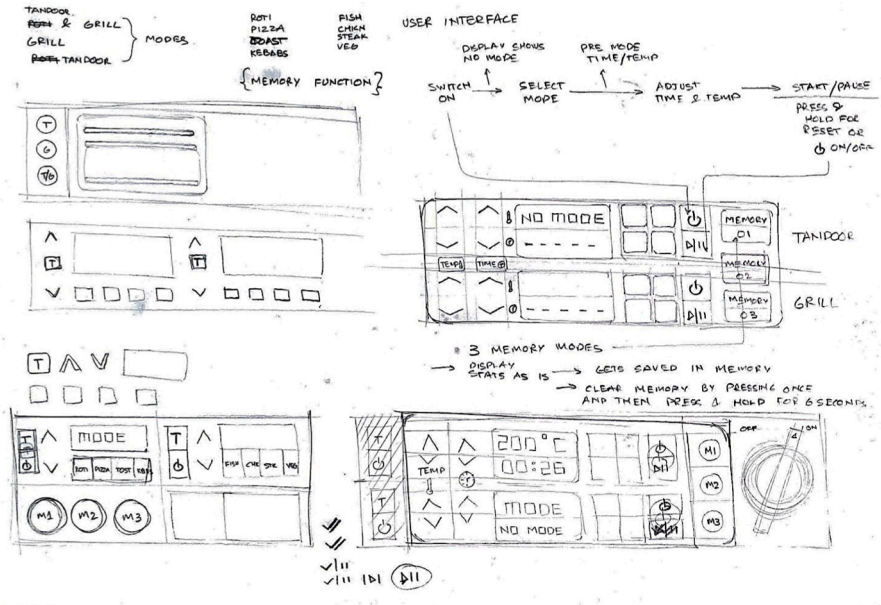 TANDOOR
ROTI & GRILL
GRILL
ROTI TANDOOR
MODES
ROTI
PIZZA
TOAST
KEBABS
FISH
CHICKN
STEAK
VEG
{MEMORY FUNCTION}
USER INTERFACE
DISPLAY SHOWS
NO MODE
PRE MODE
TIME/TEMP
SWITCH
ON
SELECT
MODE
ADJUST
TIME & TEMP
START/PAUSE
PRESS &
HOLD FOR
RESET OR
ON/OFF
T
G
T/G
NO MODE
- - - - -
TEMP
TIME
- - - - -
MEMORY
01
MEMORY
02
MEMORY
03
TANDOOR
GRILL
T
T
3 MEMORY MODES
DISPLAY
STATS AS IS
GETS SAVED IN MEMORY
CLEAR MEMORY BY PRESSING ONCE
AND THEN PRESS & HOLD FOR 6 SECONDS
T
T
MODE
ROTI PIZZA TOST KBBS
T
FISH CHK STK VEG
M1 M2 M3
T
T
TEMP
200°C
00:26
MODE
NO MODE
M1
M2
M3
OFF
ON